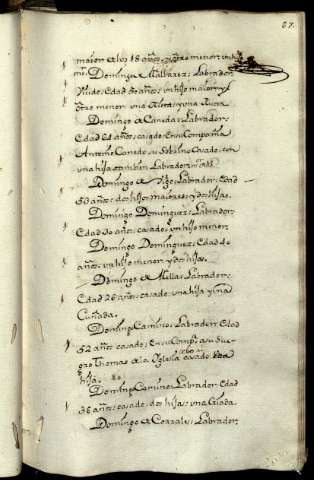 87.
maior de los 18 años, y otro menor, un hijo
Domingo Malbarez: Labrador
Viudo: Edad 60 años: un hijo maior y
otro menor una Nieta: y una Nuera
Domingo de Canedas: Labrador:
Edad años: casado: En su Compañia
Antonio Canedo su Sobrino Casado: con
una hija tambien Labrador
Domingo de Labrador: Edad
50 años: dos hijos maiores: y dos hijas.
Domingo Dominguez: Labrador:
Edad 30 años: casado: un hijo menor
Domingo Dominguez: Edad 40
años: un hijo menor: y dos hijas:
Domingo de Mellas: Labrador:
Edad 26 años: casado: una hija y una
Cuñada.
Doming Camino: Labrador: Edad
52 años casado: En su Comp. su Sue-
gro Thomas de la Iglesia casado
hija.
Doming Camino: Labrador: Edad
36 años: casado: dos hijas: una Criada.
Domingo de Corrales: Labrador: